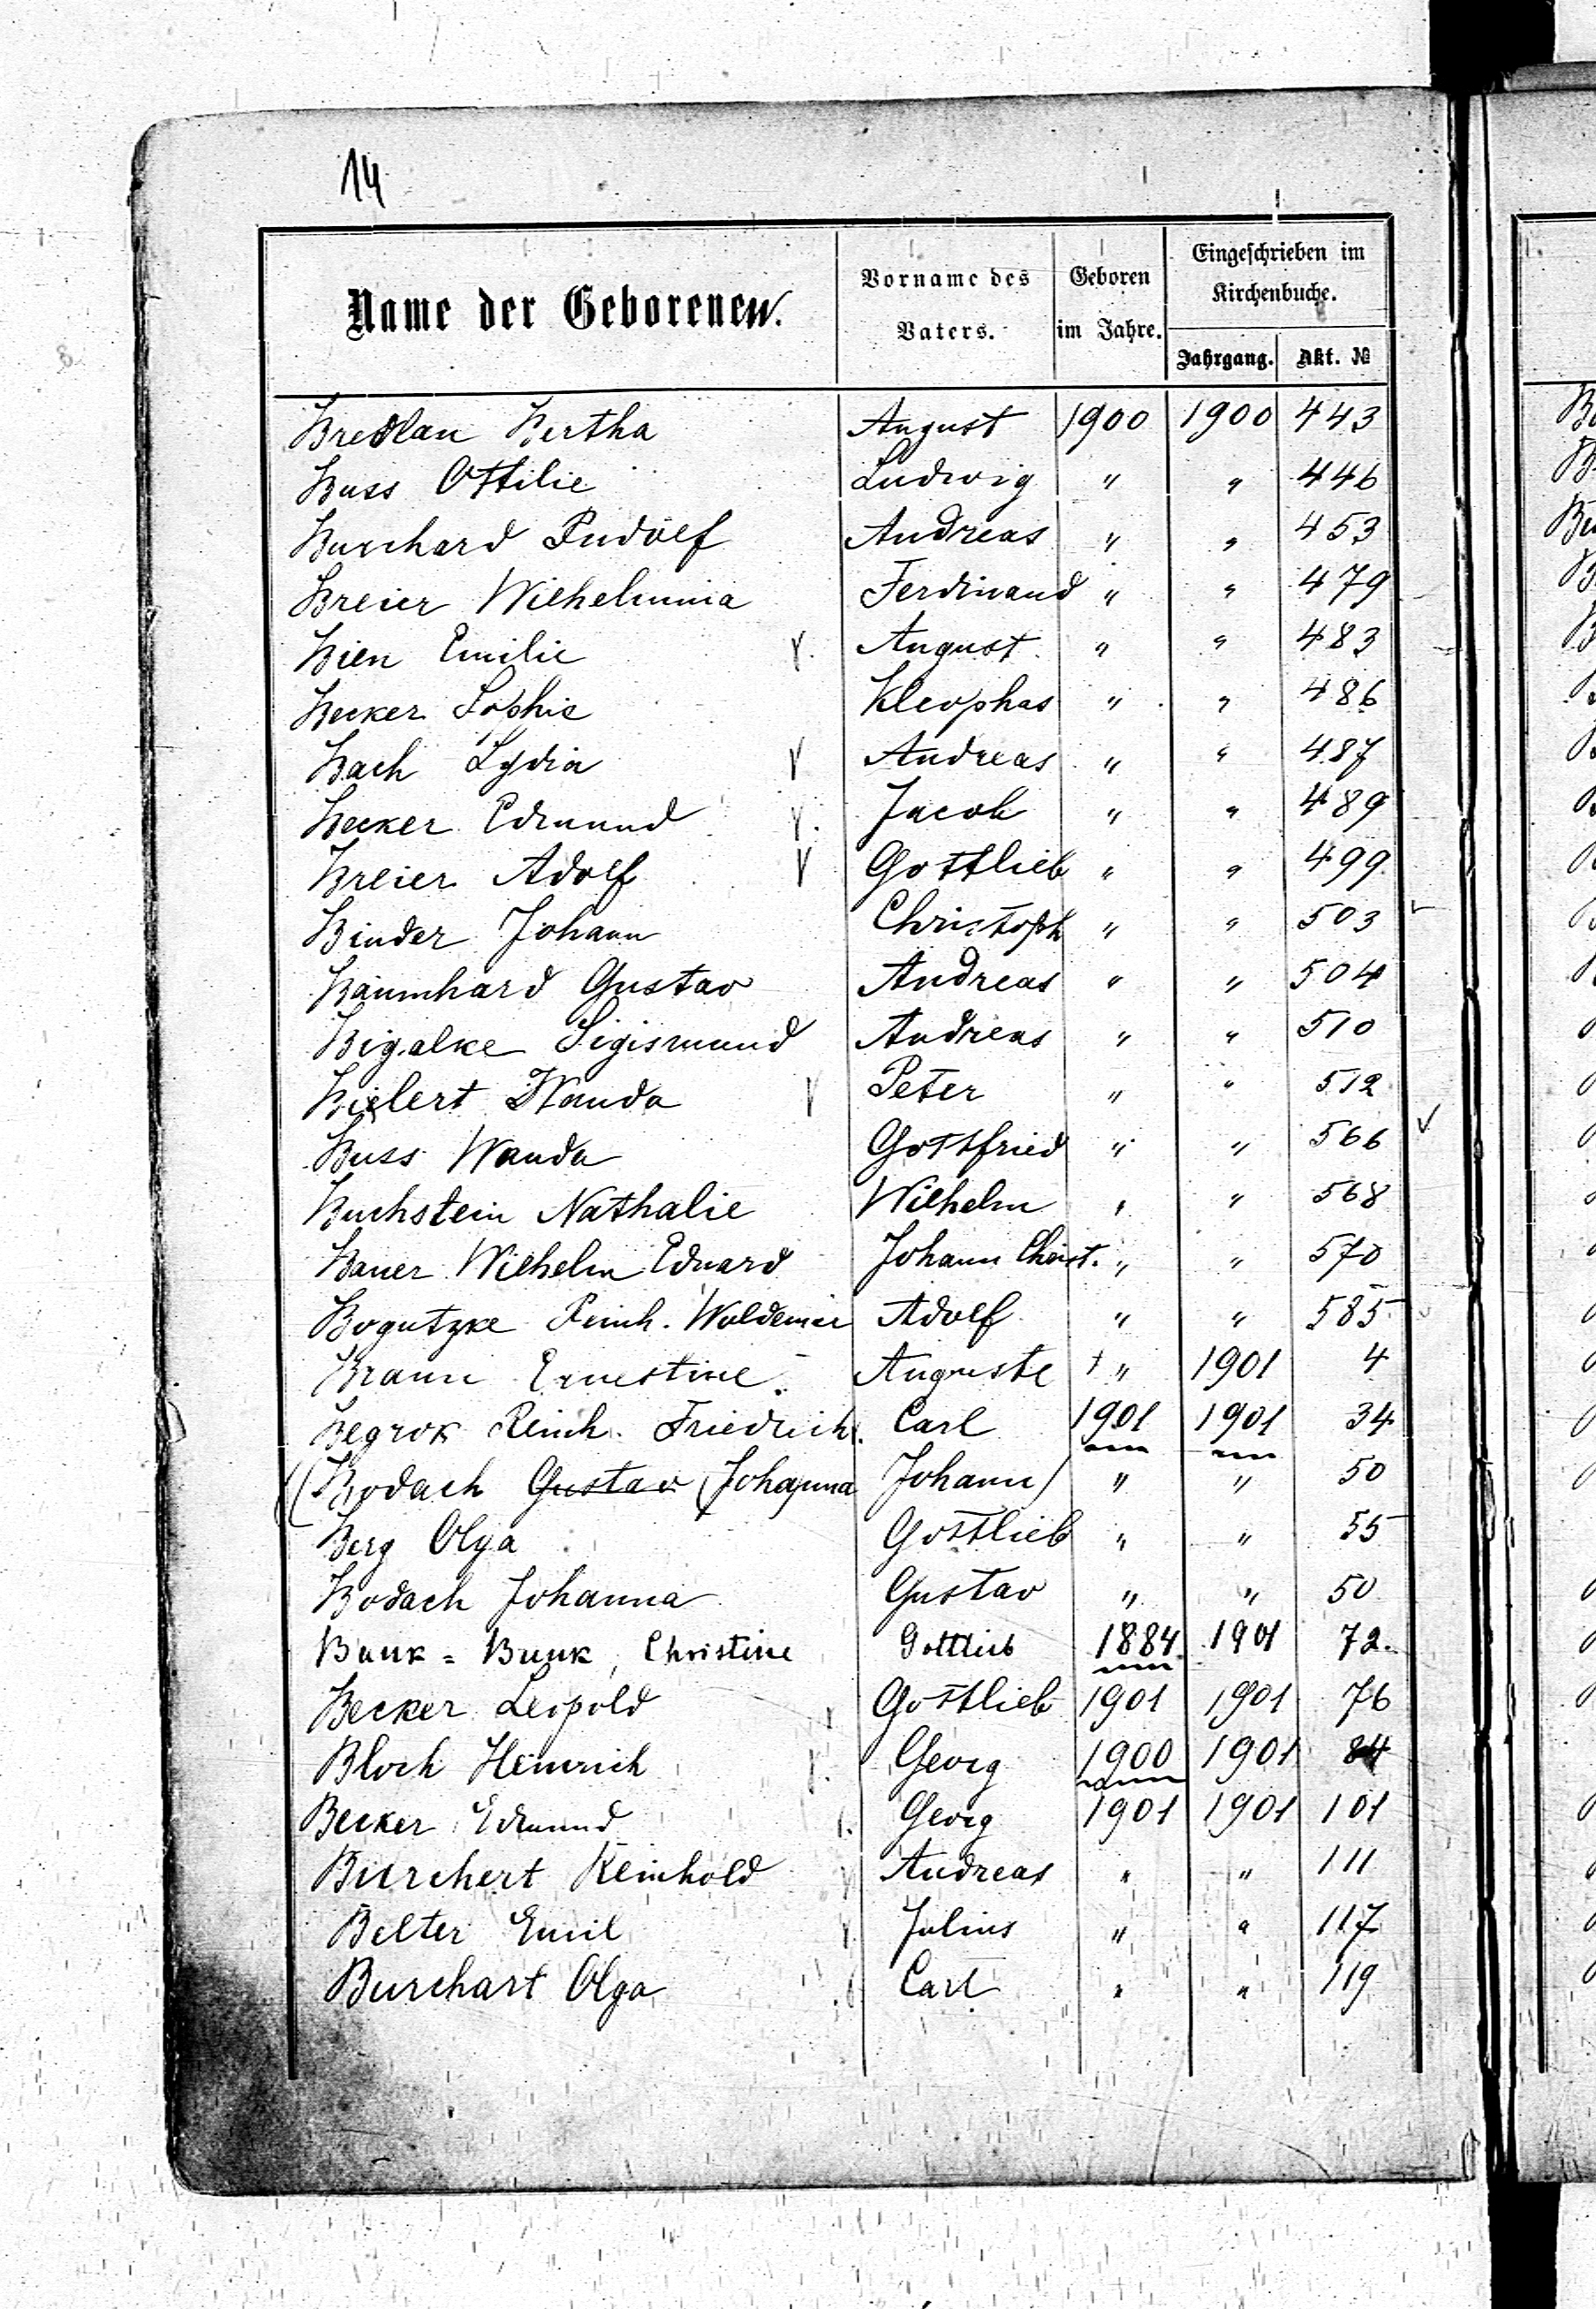 14
Name der Geborenen.
Vorname des Vaters.
Geboren im Jahre.
Eingeschrieben im Kirchenbuche.
Jahrgang. Akt. №
Breslau Bertha August 1900 1900 443
Buss Ottilie Ludwig " " 446
Burchard Rudolf Andreas " " 453
Breier Wilhelmina Ferdinand " " 479
Bien Emilie August " " 483
Becker Sophie Kleophas " " 486
Bach Lydia Andreas " " 487
Becker Edmund Jacob " " 489
Breier Adolf Gottlieb " " 499
Binder Johann Christoph " " 503
Baumhard Gustav Andreas " " 504
Bigalke Sigismund Andreas " " 510
Wanda Peter " " 512
Buss Wanda Gottfried " " 566
Buchstein Nathalie Wilhelm " " 568
Bauer Wilhelm Eduard Johann Christ. " " 570
Bogutzke Reinh. Woldemar Adolf " " 585
Braun Ernestine Auguste † " 1901 4
Begrok Reinh. Friedrich. Carl 1901 1901 34
(Bodach Gustav (Johanna Johann) " " 50
Berg Olga Gottlieb " " 55
Bodach Johanna Gustav " " 50
Bunk = Bunk, Christine Gottlieb 1884 1901 72.
Becker Leopold Gottlieb 1901 1901 76
Bloch Heinrich Georg 1900 1901 84
Becker Edmund Georg 1901 1901 101
Burchert Reinhold Andreas " " 111
Belter Emil Julius " " 117
Burchart Olga Carl " " 119